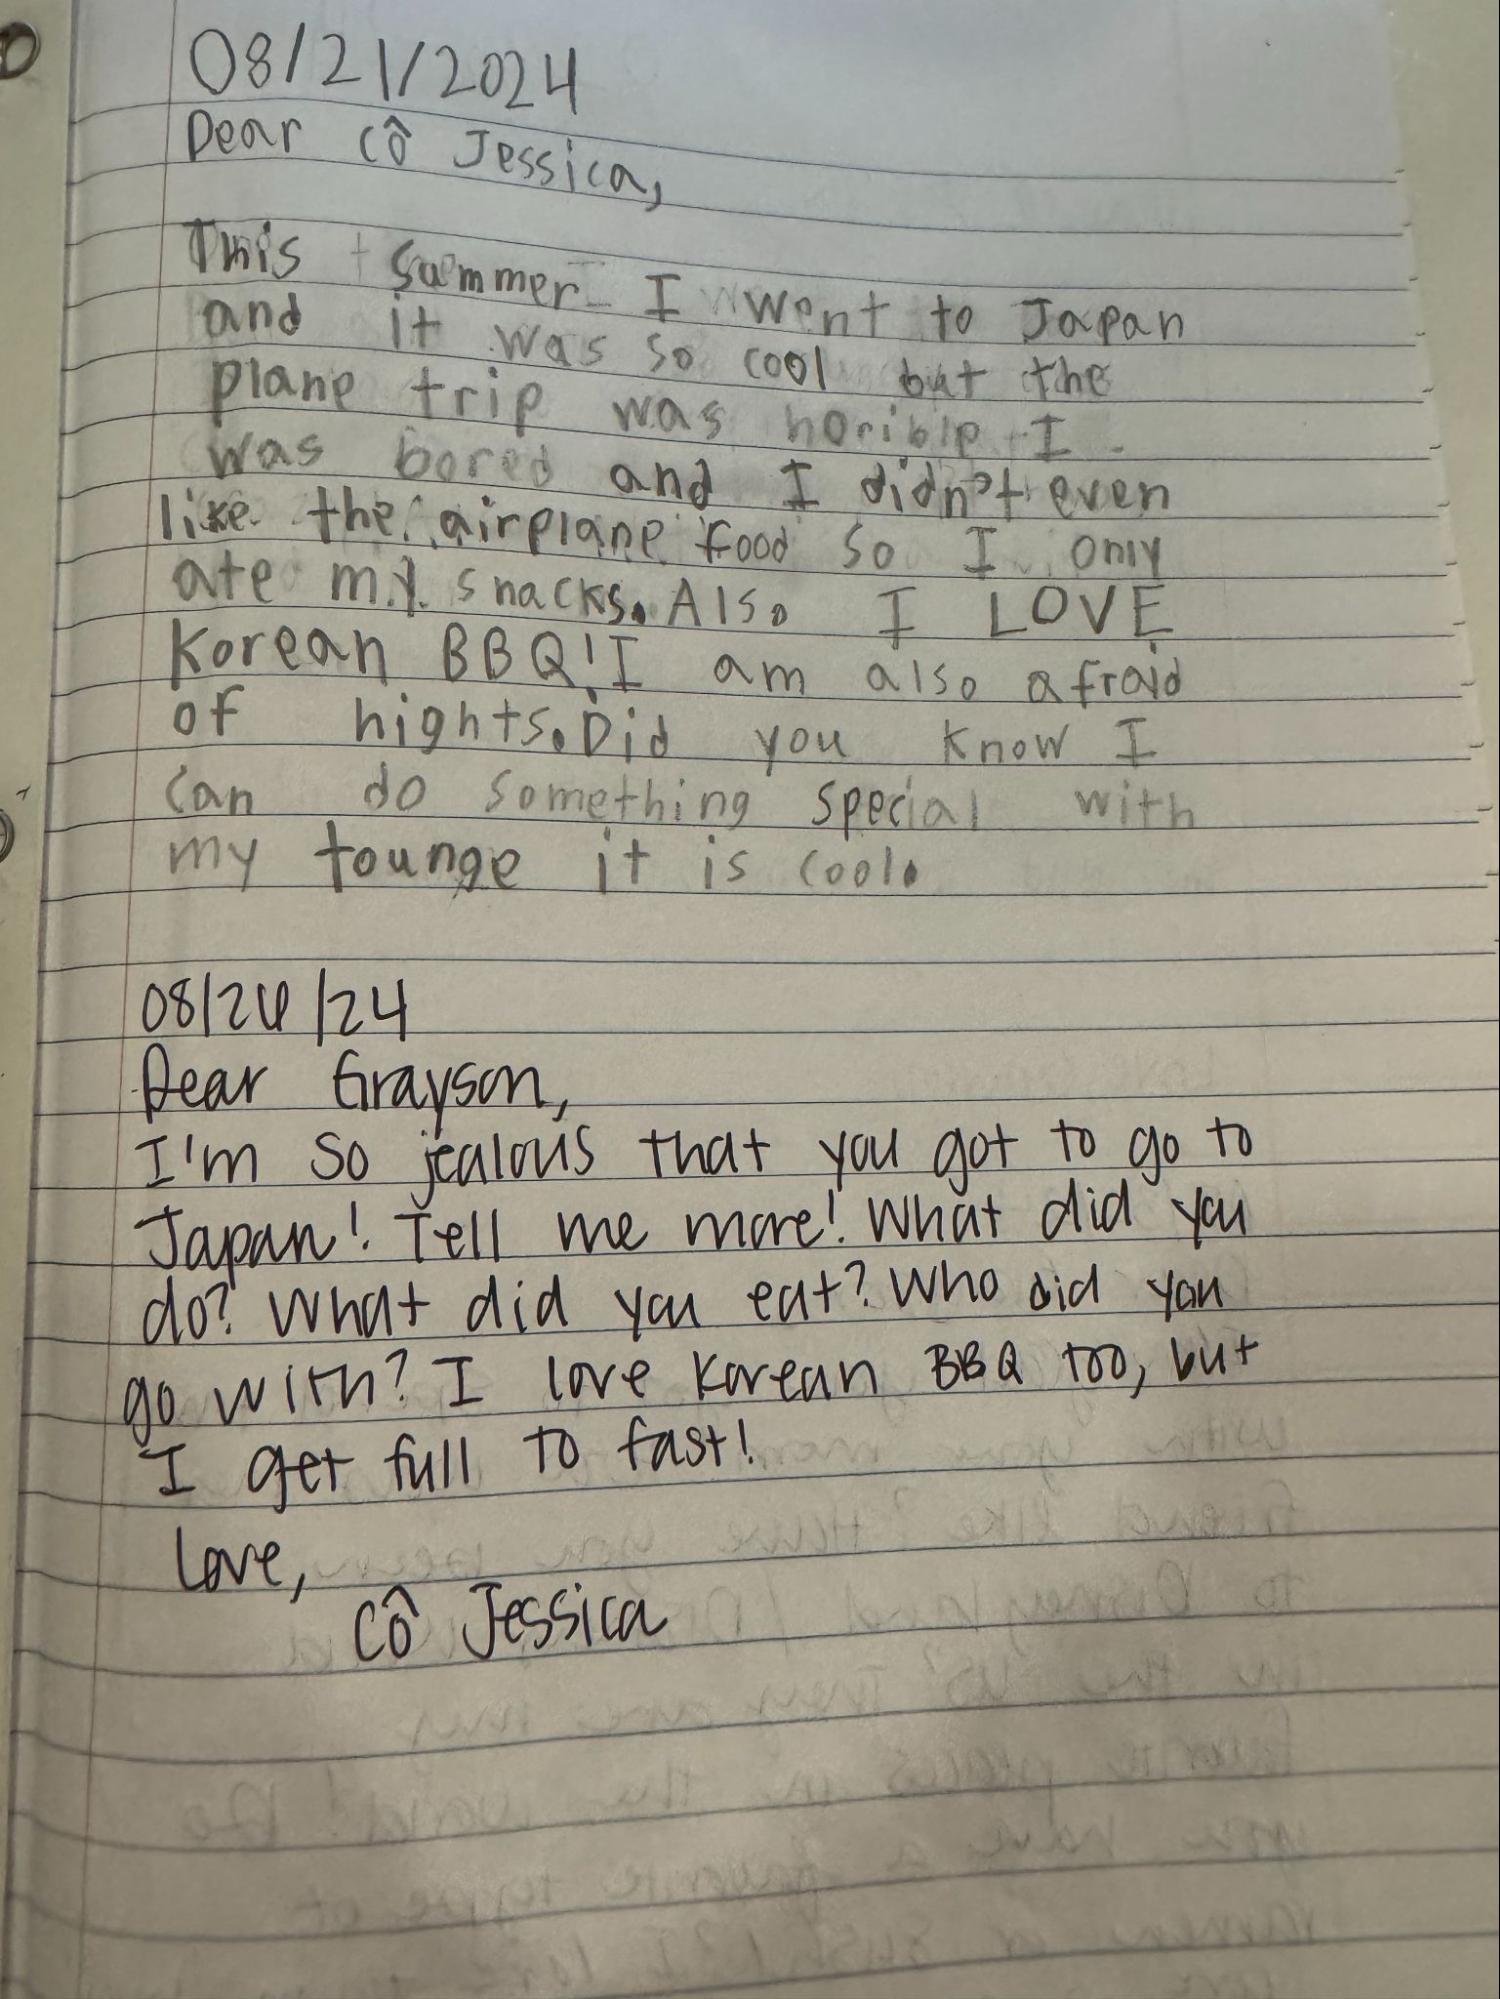 08/21/2024
Dear Cô Jessica,
This summer I went to Japan
and it was so cool but the
plane trip was horible I
was bored and I didn't even
like the airplane food so I only
ate my snacks. Also I LOVE
Korean BBQ! I am also afraid
of hights. Did you know I
can do something special with
my tounge it is cool.
08/26/24
Dear Grayson,
I'm so jealous that you got to go to
Japan! Tell me more! What did you
do? What did you eat? Who did you
go with? I love Korean BBQ too, but
I get full to fast!
Love,
Cô Jessica